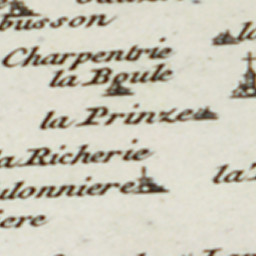 busson
Charpentrie
la Boule
la Prinze
la Richerie
ulonniere
iere